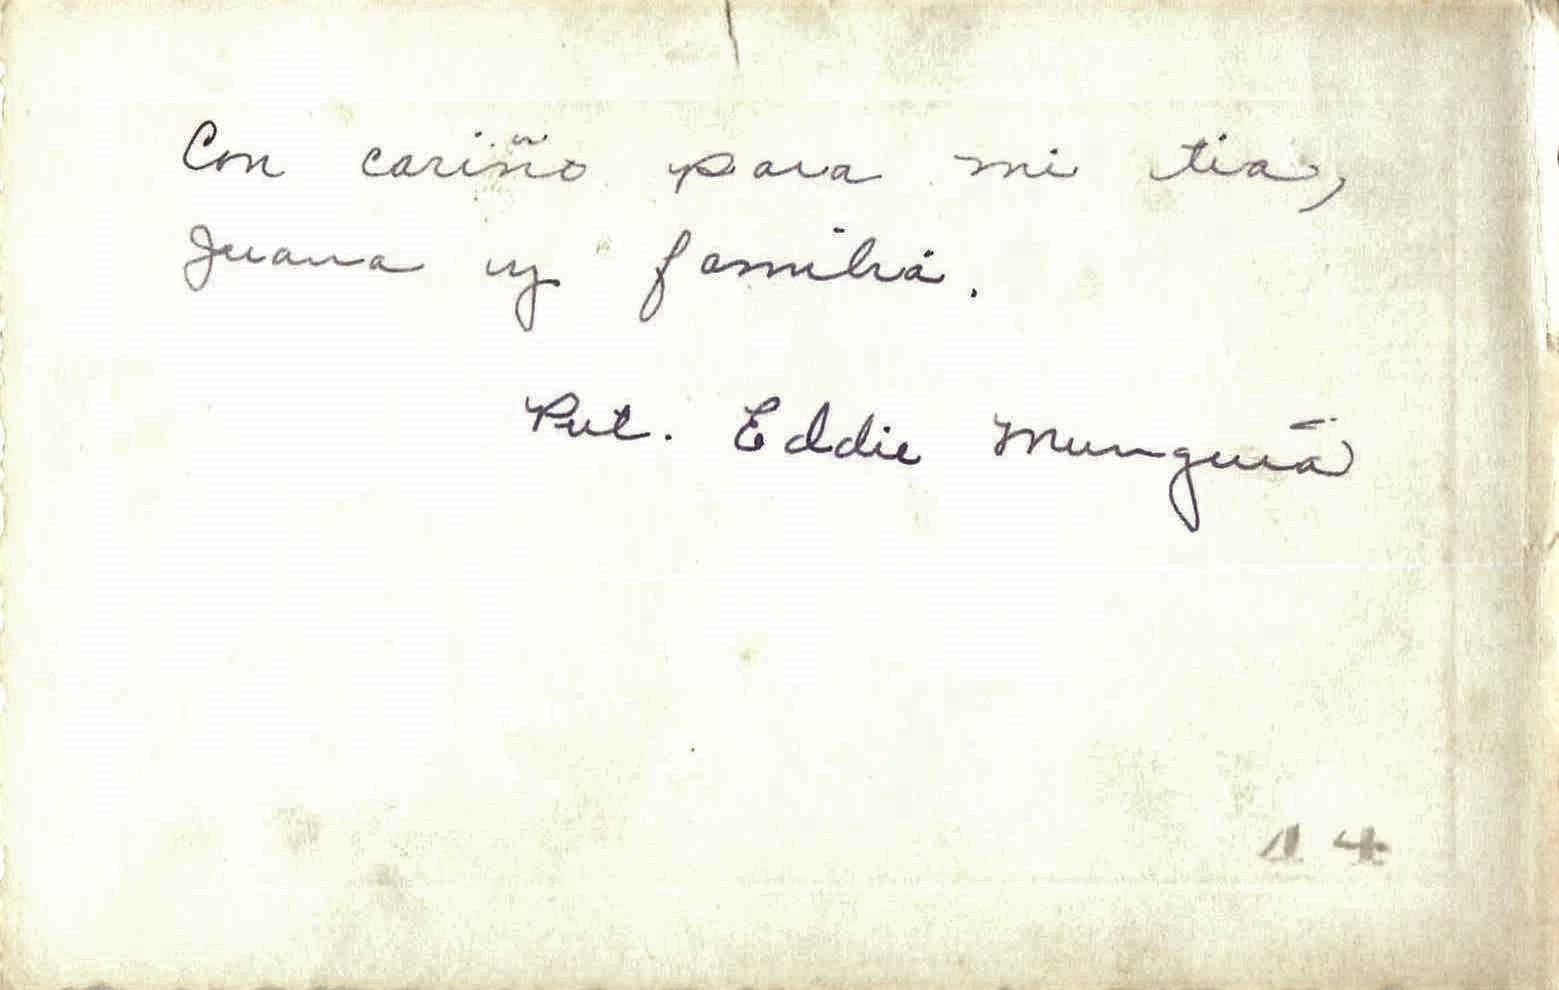 Con cariño para mi tia,
Juana y familia.
Pvt. Eddie Munguía
14